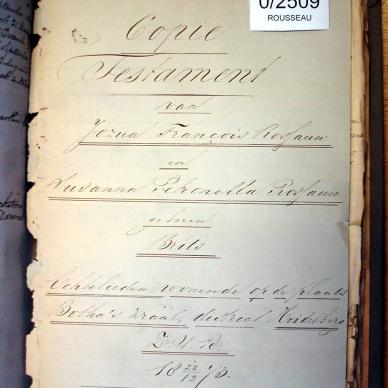 0/2509
ROUSSEAU
Copie
Testament
van
Jozua François Rossauw
en
Susanna Petronella Rossauw
geboren
Brits
Echtelieden wonende op de plaats
Botha's Kraal, district Heidelberg
Z.A.R.
18 22/12 73.